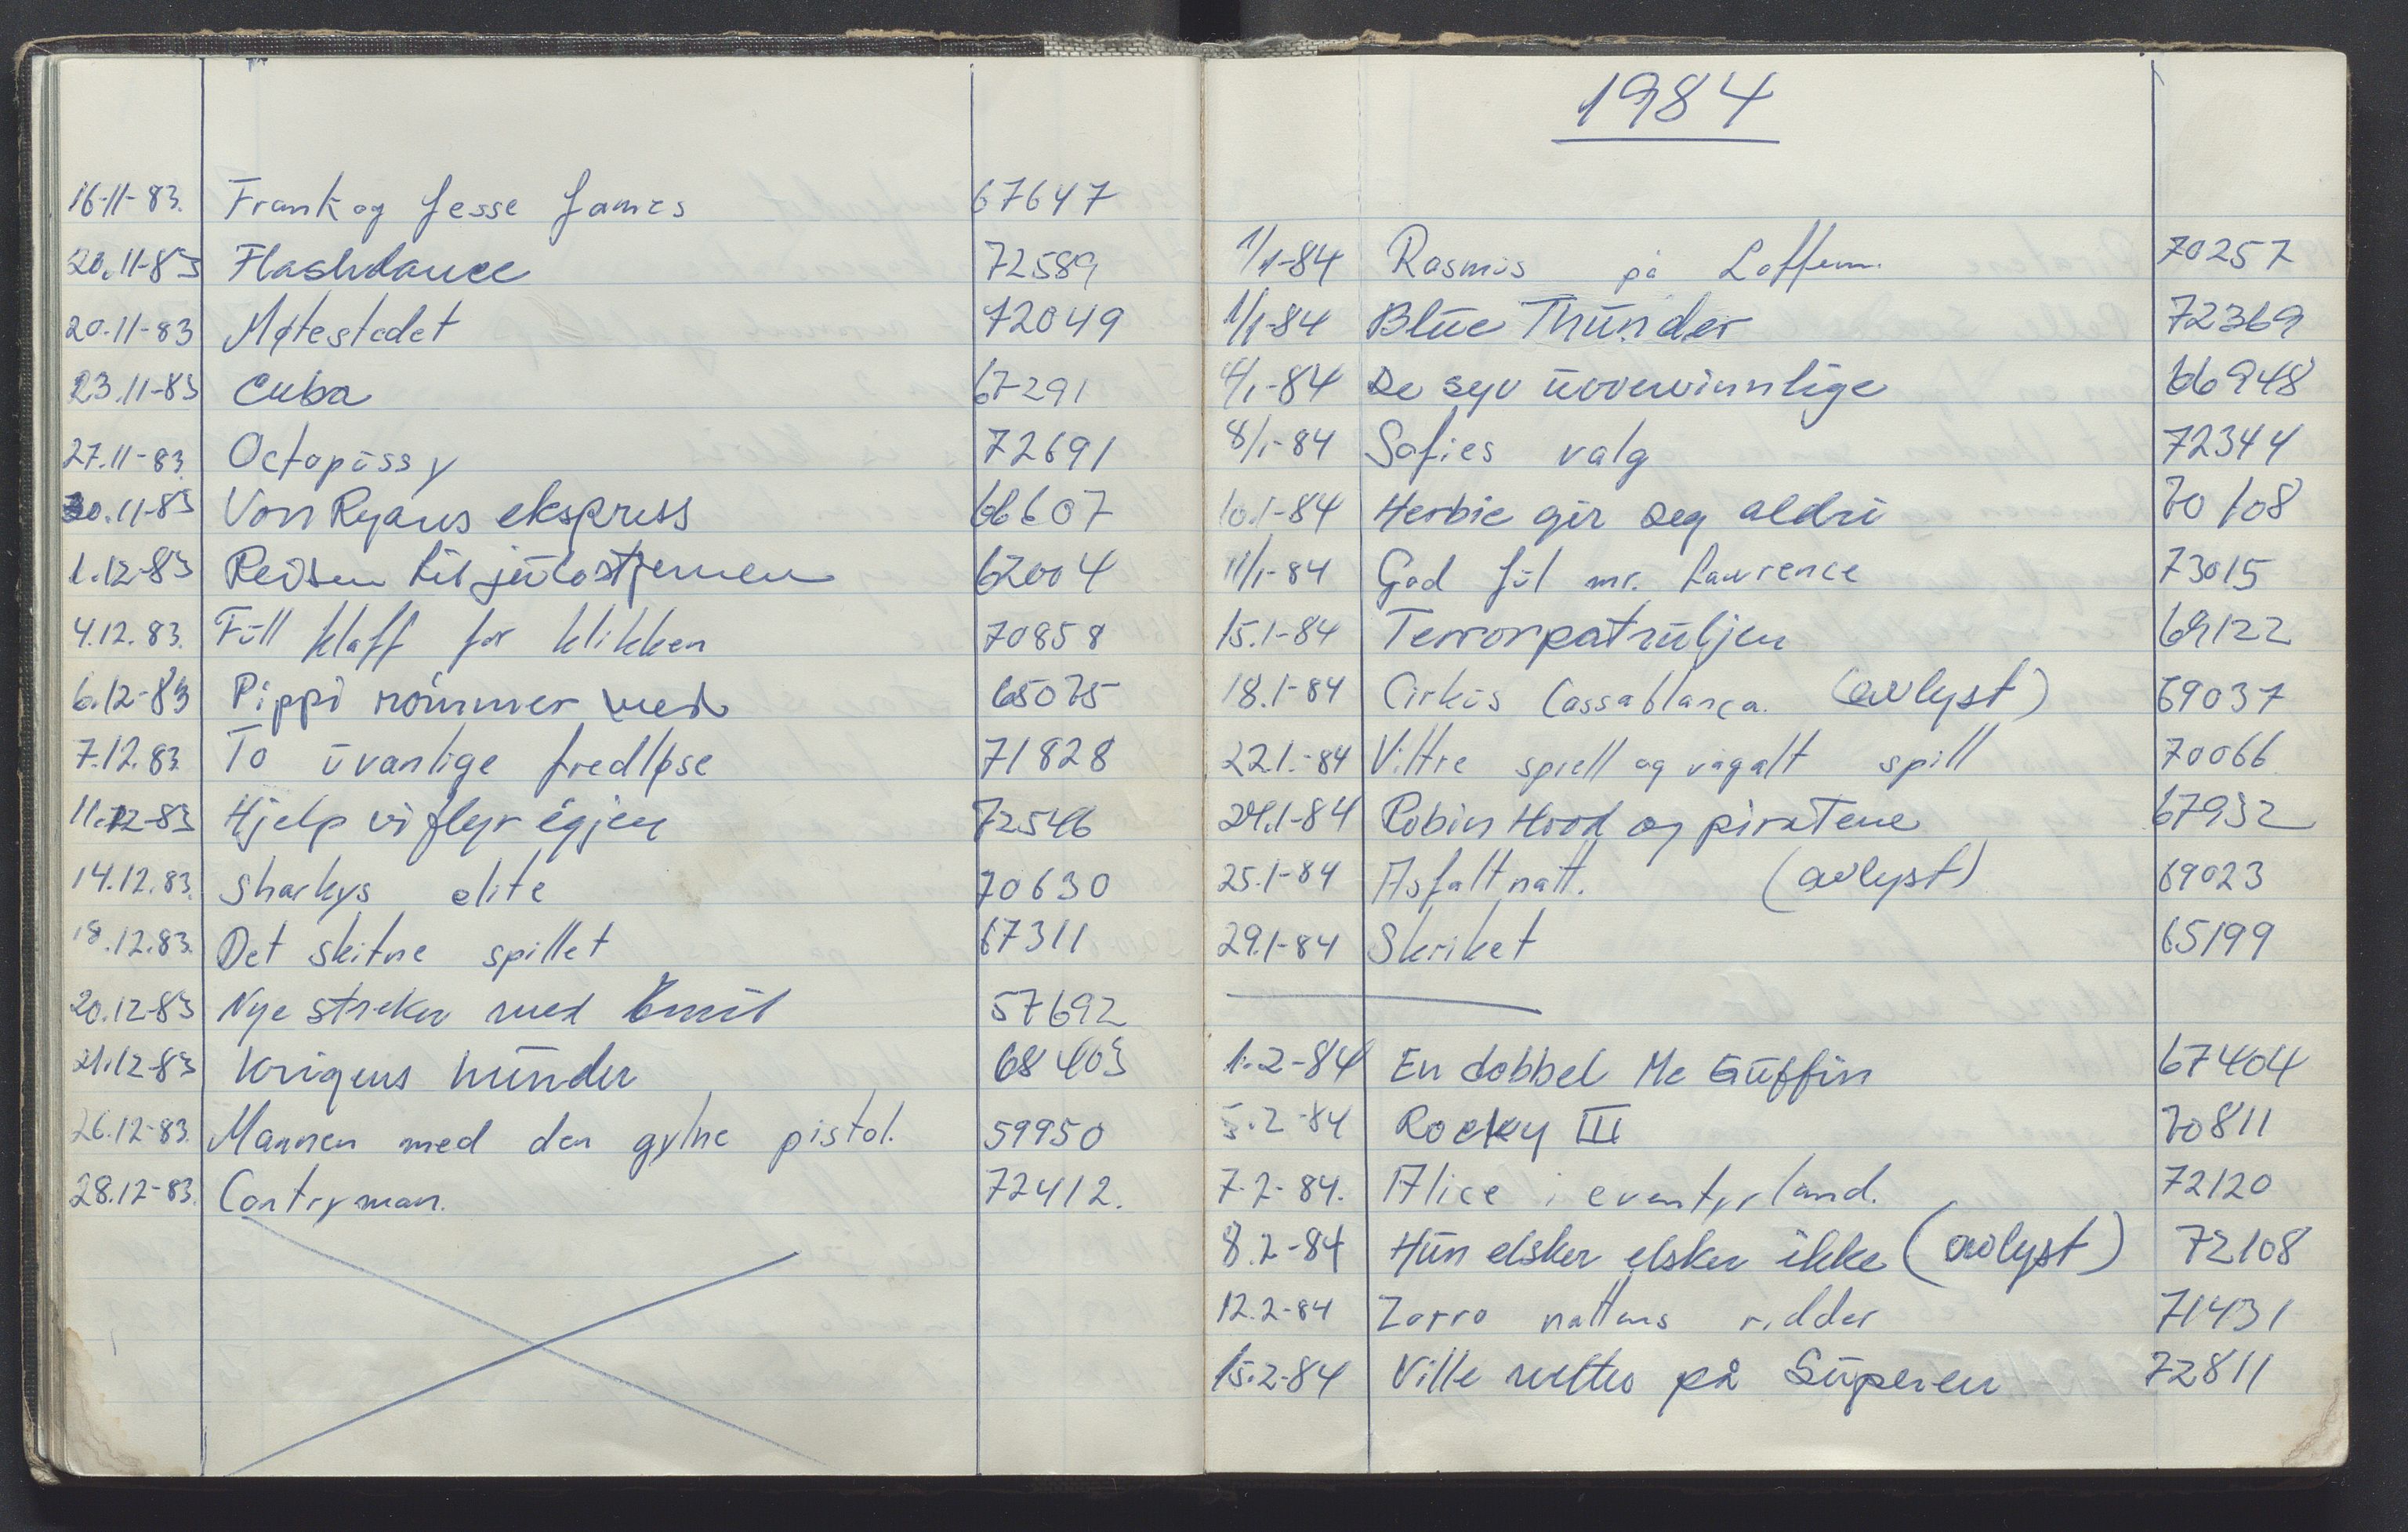 16-11-83. Frank og Jesse James 67647
20.11-83 Flashdance 72589
20.11-83 Møtestedet 72049
23.11-83 Cuba 67291
27.11-83. Octopussy 72691
30.11-83 Von Ryans ekspress 66607
1.12-83 Reisen til julestjernen 62004
4.12.83. Full klaff for klikken 70858
6.12-83 Pippi rømmer ved 65075
7.12.83. To uvanlige fredløse 71828
11.12-83 Hjelp vi flyr igjen 72546
14.12.83. Sharkys elite 70630
18.12.83. Det skitne spillet 67311
20.12-83 Nye streker med Emil 57692
21.12-83 Krigens hunder 68403
26.12-83. Mannen med den gylne pistol. 59950
28.12-83. Contryman. 72412.
1984
1/1-84 Rasmus på Loffen. 70257
1/1-84 Blue Thunder 72369
4/1-84 De syv uovervinnlige 66948
8/1-84 Sofies valg 72344
10.1-84 Herbie gir seg aldri 70108
11/1-84 God Jul mr. Lawrence 73015
15.1-84 Terrorpatruljen 69122
18.1-84 Cirkus Cassablanca. (avlyst) 69037
22.1.-84 Viltre sprell og vågalt spill 70066
24.1-84 Robin Hood og piratene 67932
25.1-84 Asfaltnatt. (avlyst) 69023
29.1-84 Skriket 65199
1.2-84 En dobbel Mc Guffin 67404
5.2-84 Rocky III 70811
7.2-84. Alice i eventyrland. 72120
8.2-84 Hun elsker elsker ikke (avlyst) 72108
12.2-84 Zorro nattens ridder 71431
15.2-84 Ville på Superen 72811